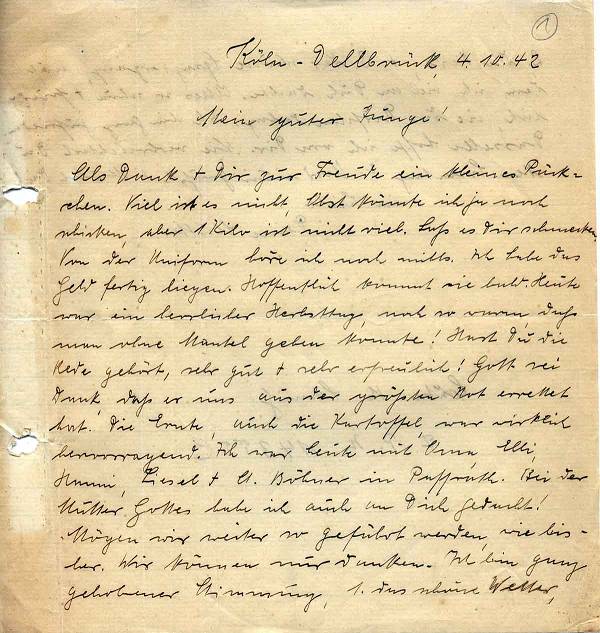 1
Köln-Dellbrück, 4.10.42
Mein guter Junge!
Als Dank + Dir zur Freude ein kleines Päck-
chen. Viel ist es nicht, Obst könnte ich ja noch
schicken, aber 1 Kilo ist nicht viel. Laß es Dir schmecken.
Von der Uniform höre ich noch nichts. Ich habe das
Geld fertig liegen. Hoffentlich kommt sie bald. Heute
war ein herrlicher Herbsttag, noch so warm, daß
man ohne Mantel gehen konnte! Hast Du die
Rede gehört, sehr gut + sehr erfreulich! Gott sei
Dank, daß er uns aus der größten Not errettet
hat. Die Ernte, auch die Kartoffel, war wirklich
hervorragend. Ich war heute mit Oma, Elli,
Hanni, Liesel + Böhner in Paffrath. Bei der
Mutter Gottes habe ich auch an Dich gedacht!
Mögen wir weiter so geführt werden, wie bis-
her. Wir können nur danken. Ich bin ganz
gehobener Stimmung, 1. das schöne Wetter,